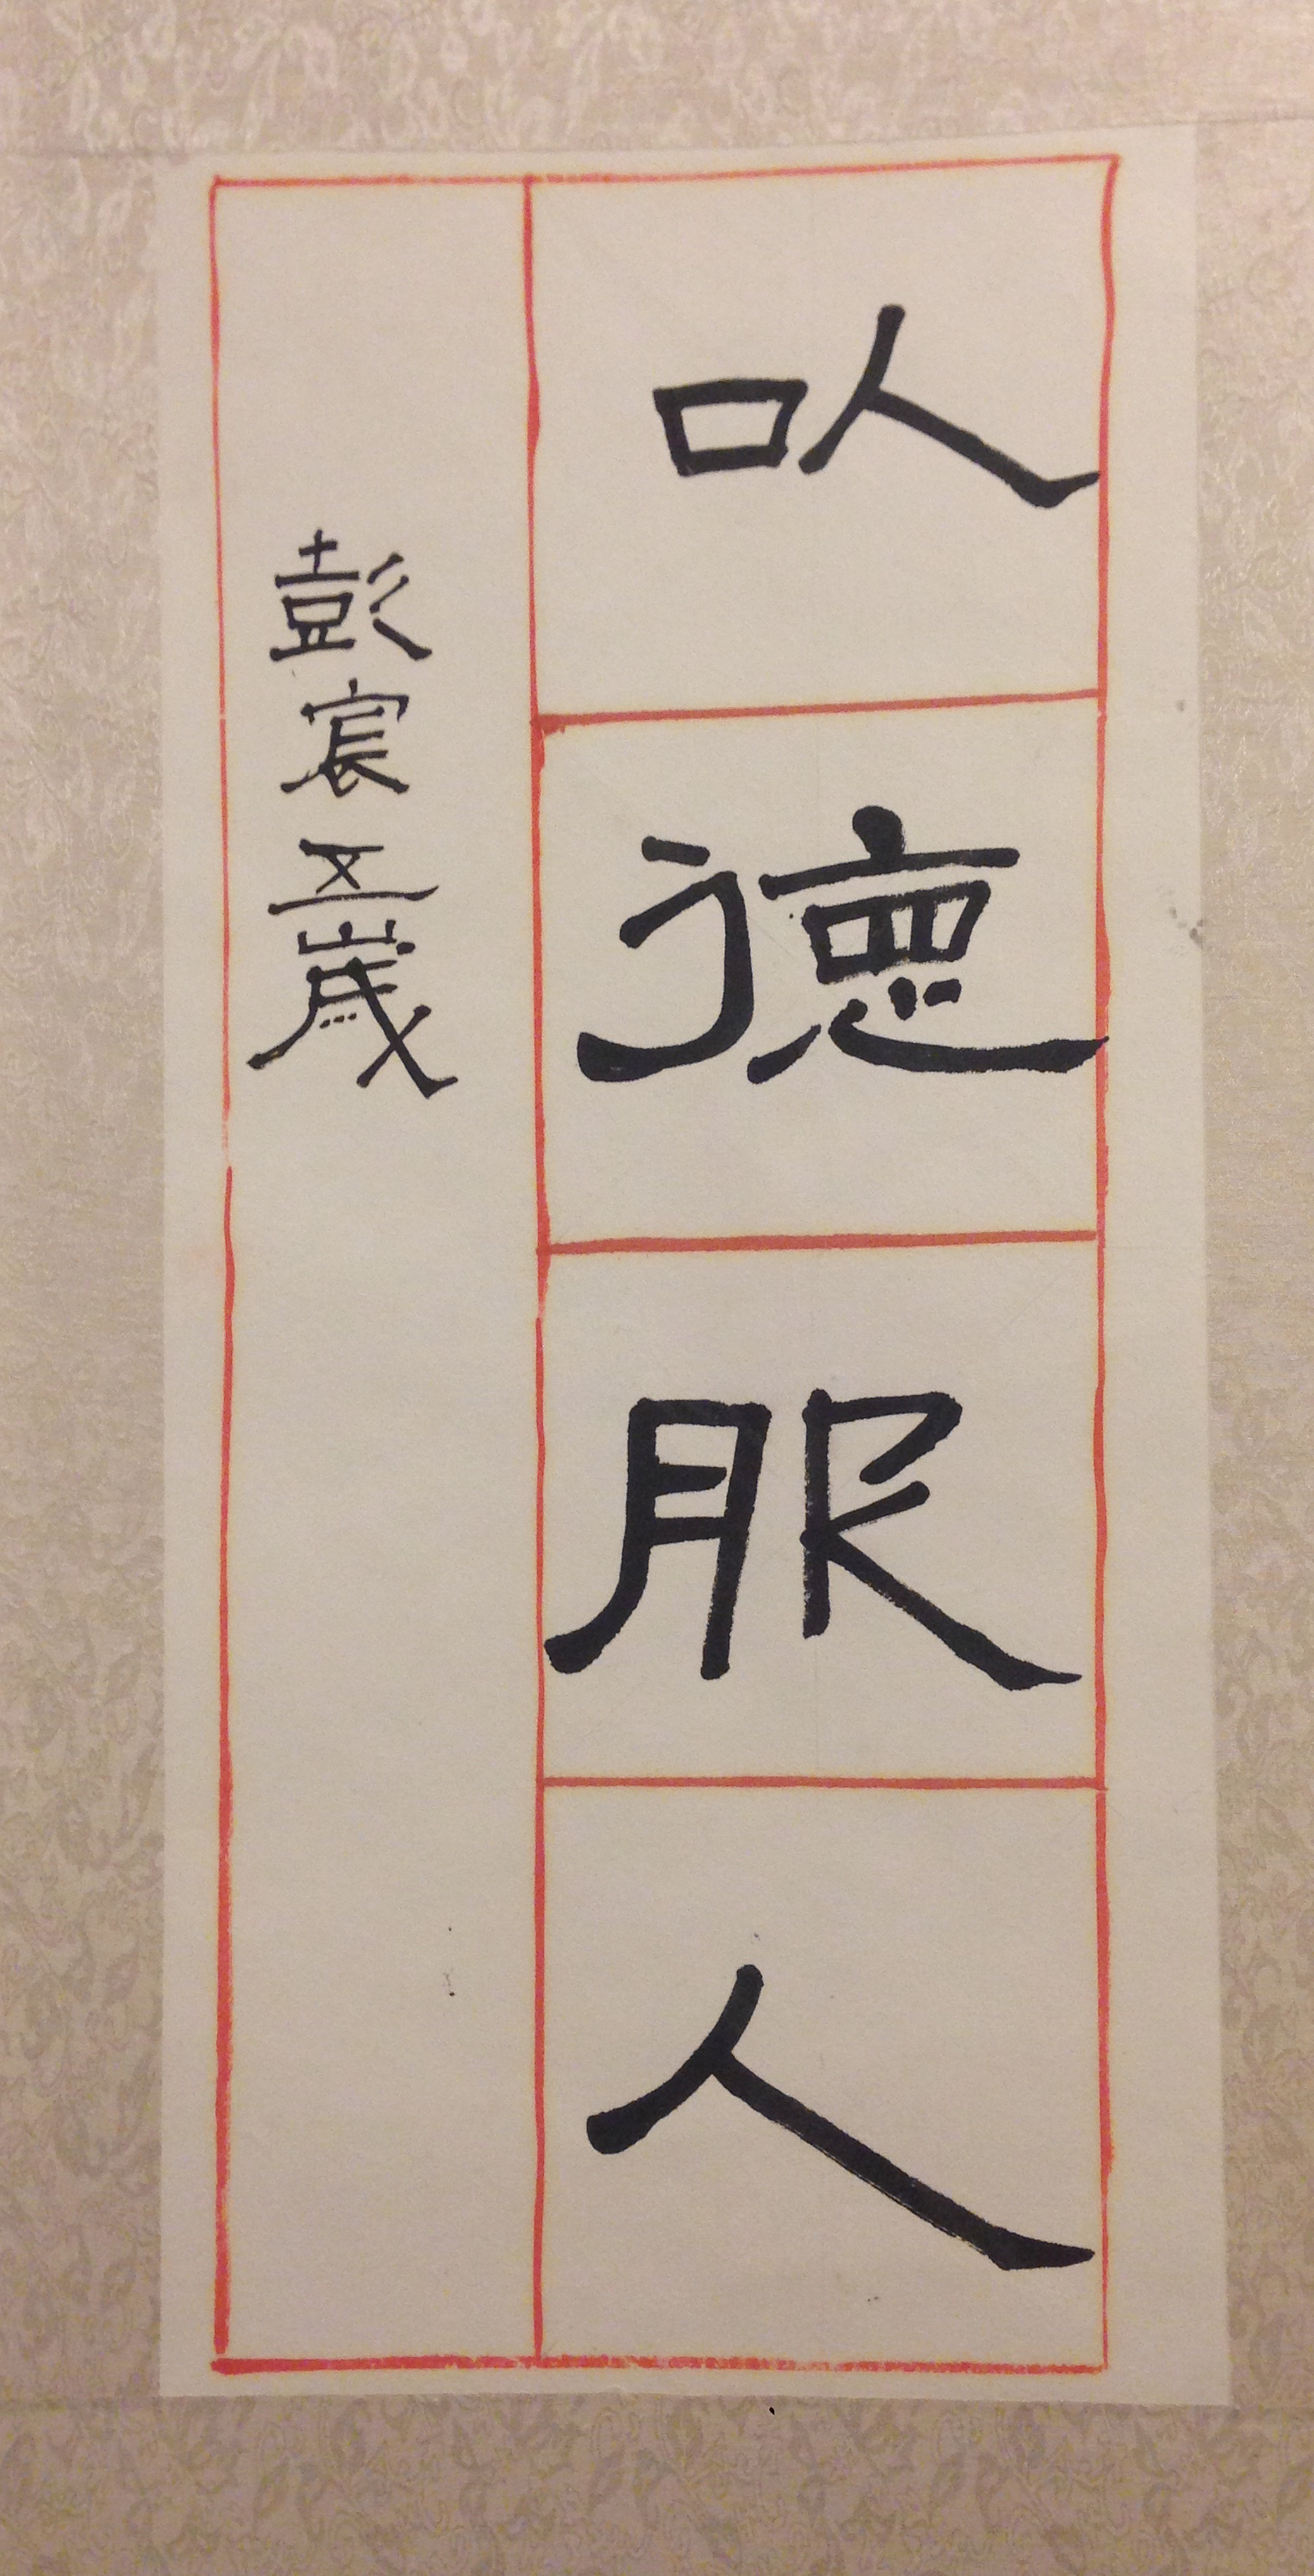 以德服人
彭宸五歲